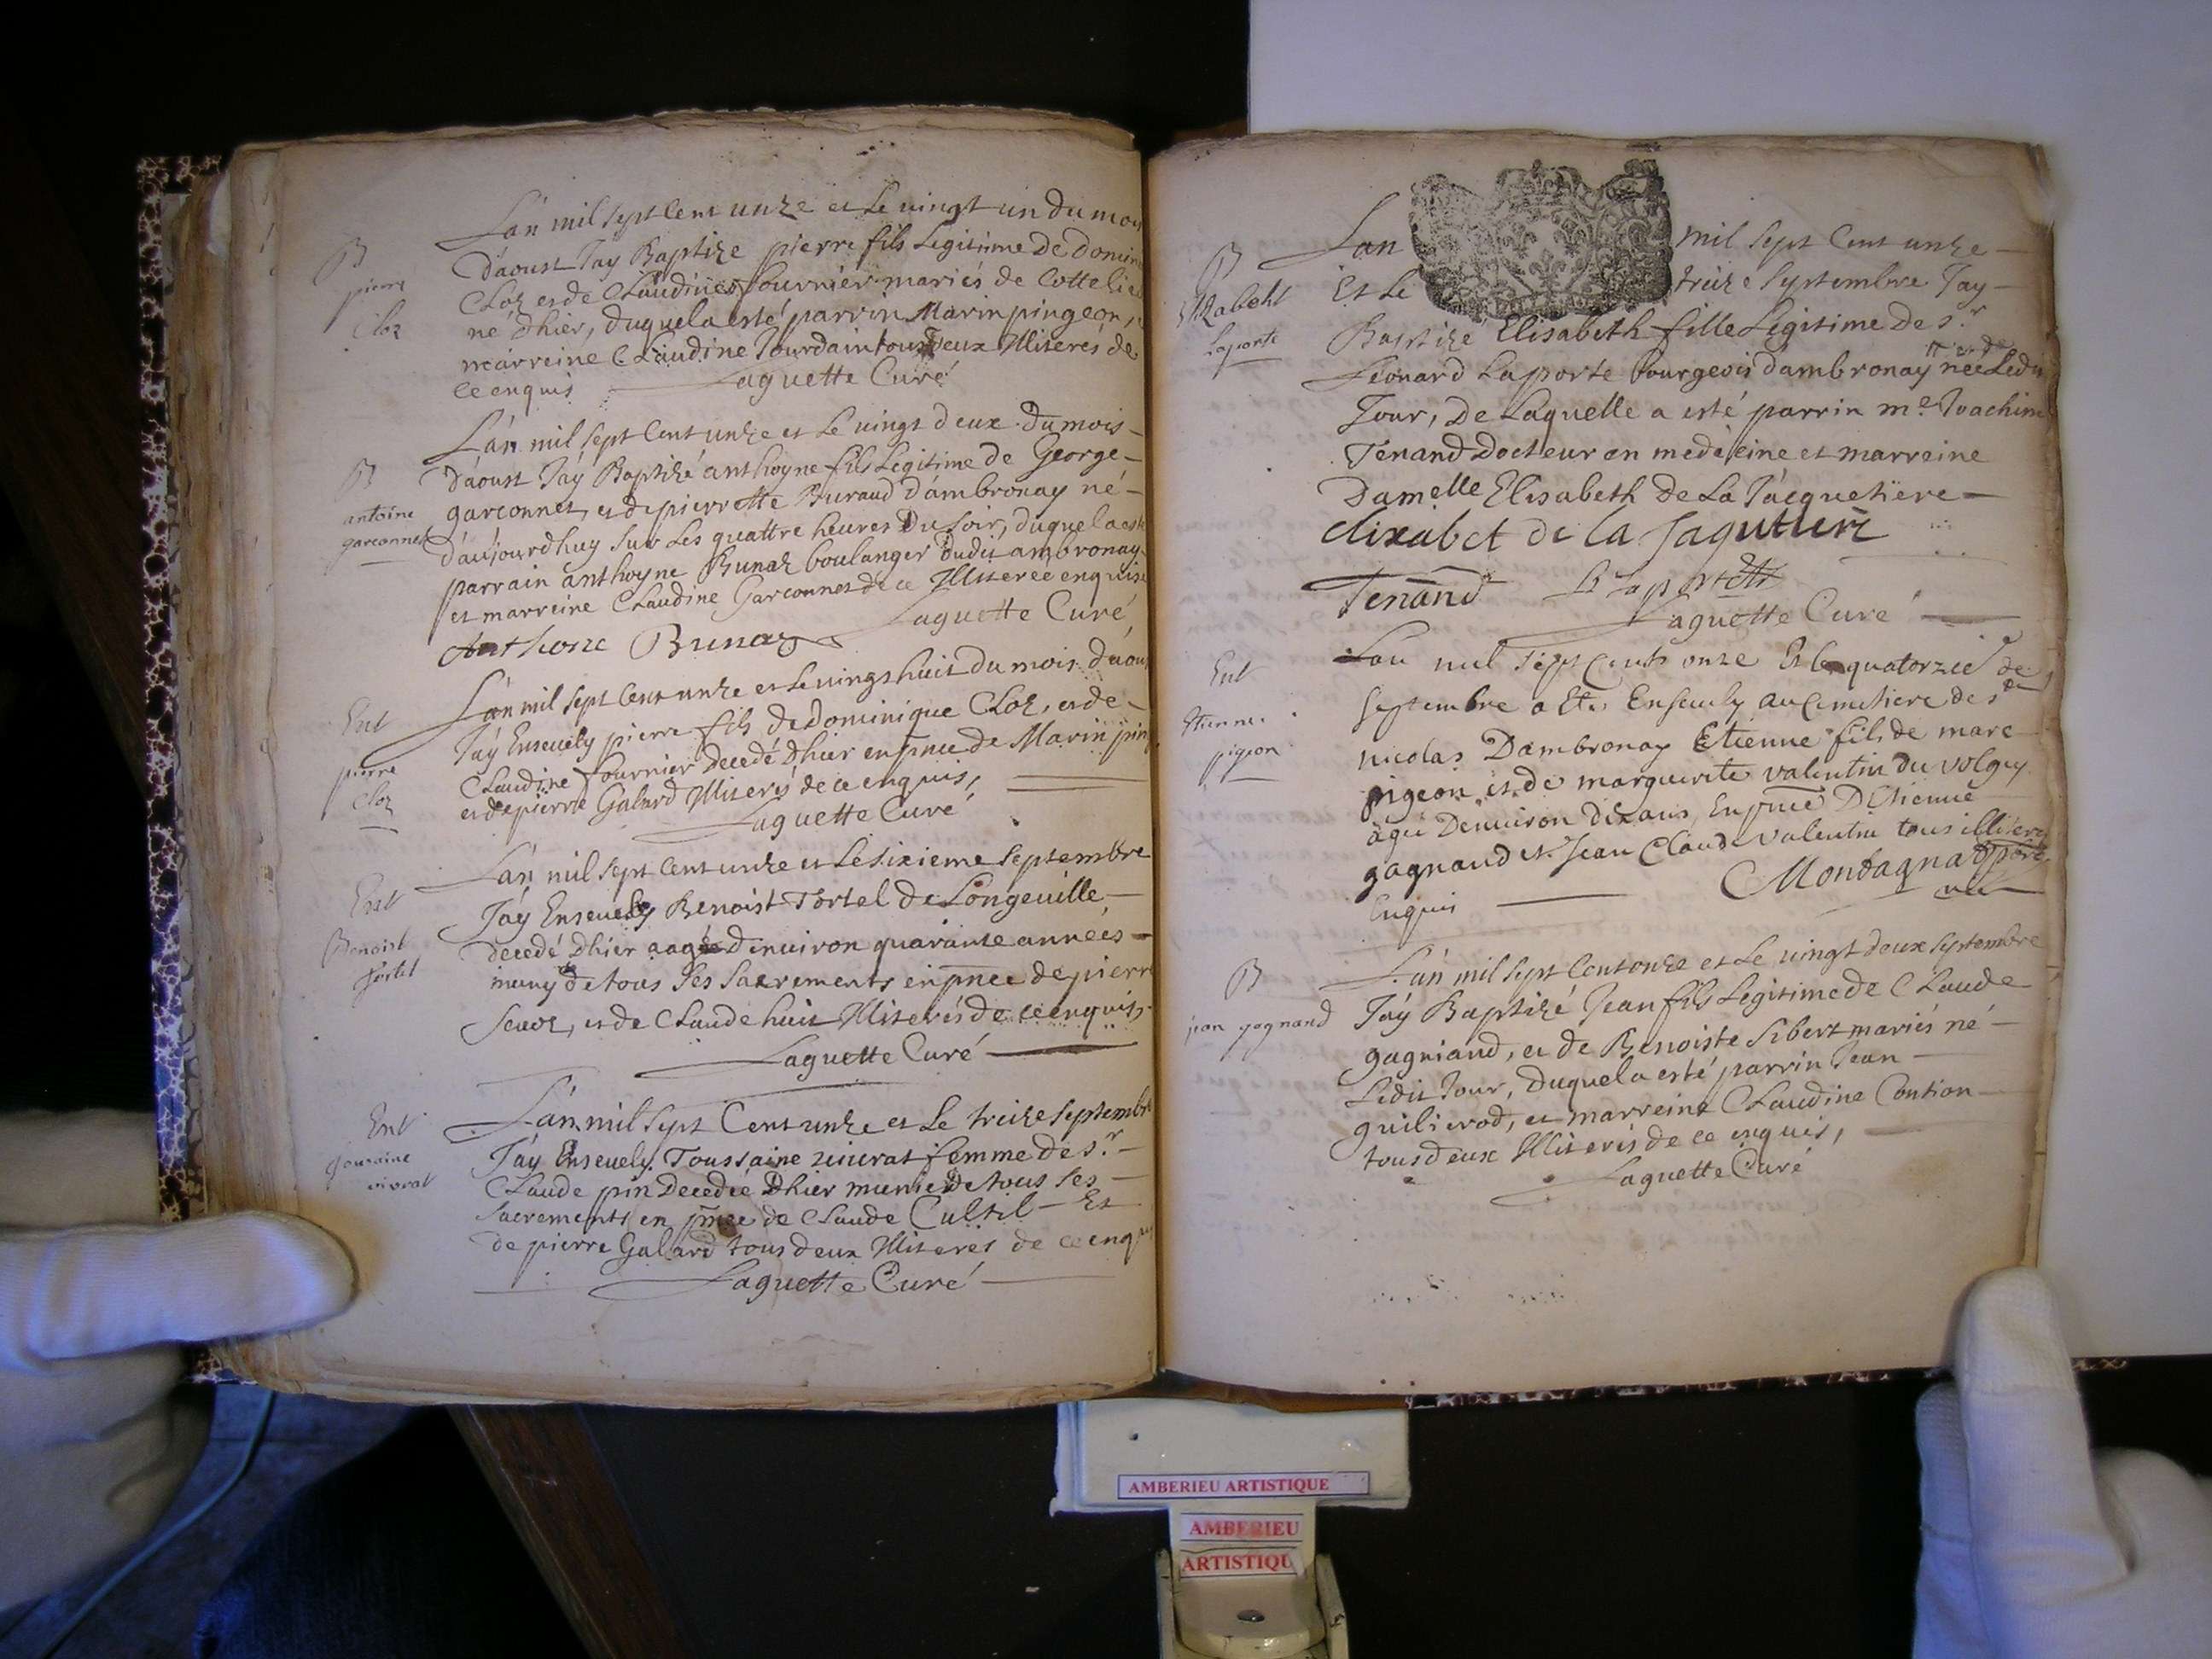 B
pierre
Cloz
L'an mil sept Cent unze et Le vingt un du mois
D'aoust J'ay Baptize pierre fils Legitime De Domini
Cloz et de Claudine fournier mariés de Cottelieu
né dhier, duquel a esté parrin Marin pingeon,
marreine Claudine Jourdain tous Deux Illiterés de
ce enquis Laguette Curé
B
antoine
garconnet
L'an mil sept Cent unze et Le vingt deux Du mois
D'aoust J'ay Baptizé anthoyne fils Legitime De George
garconnet, et de pierrette Buraud d'ambronay né
d'aujourdhuy sur Les quattre heures Du soir, duquel a esté
parrain anthoyne Bunaz boulanger dudit ambronay
et marreine Claudine Garconnet de ce Illiterée enquise
Anthoine Bunaz Laguette Curé
Ent
pierre
Cloz
L'an mil sept Cent unze et Le vingt huit Du mois d'aoust
J'ay Enseuely pierre fils de Dominique Cloz, et de
Claudine fournier Decedé Dhier en pnce de Marin pin
et de pierre Galard Illiterés de ce enquis,
Laguette Curé
Ent
Benoist
Tortel
L'an mil sept Cent unze et Le sixieme Septembre
J'ay Enseuely Benoist Tortel de Longeuille,
decedé Dhier aagé Denuiron quarante années
muny de tous Ses Sacrements en pnce de pierre
et de Claude huit Illiterés de ce enquis,
Laguette Curé
Ent
Tousaine
vivrat
L'an mil sept Cent unze et Le treize Septembre
J'ay Enseuely Toussaine viurat femme de Sr
Claude pin Decedée Dhier munie De tous Ses
Sacrements en pnce de Claude Cultil Et
de pierre Galard tous deux Illiterés de ce enquis
Laguette Curé
B
Elizabeht
Laporte
Lan mil Sept Cent unze
Et Le treize Septembre J'ay
Baptizé Elisabeth fille Legitime De Sr
Leonard Laporte bourgeois d'ambronay née Ledit
Jour, De Laquelle a esté parrin me Joachim
Tenand Docteur en medecine et marreine
Damelle Elisabeth De La Jacquetiere
elixabet de la Jaqutiere
Tenand Laporte
Laguette Curé
Ent
Etienne
pigeon
Lan mil sept cents onze Et le quatorzie de
septembre a Eté Enseuely au Cimetiere de st
nicolas Dambronay Etienne fils de marc
pigeon et de marguerite valentin du volgey
agé Denuiron dix ans, En pnce DEtienne
gagnand et Jean Claude valentin tous illiteres
Enquis Montagnat
B
jean gagnand
L'an mil sept Cent onze et Le vingt deux Septembre
J'ay Baptizé Jean fils Legitime de Claude
gagniand, et de Benoiste Sibert mariés né
Ledit Jour, Duquel a esté parrin Jean
guilierod, et marreine Claudine Contion
tous deux Illiterés de ce enquis,
Laguette Curé
AMBERIEU ARTISTIQUE
AMBERIEU
ARTISTIQU